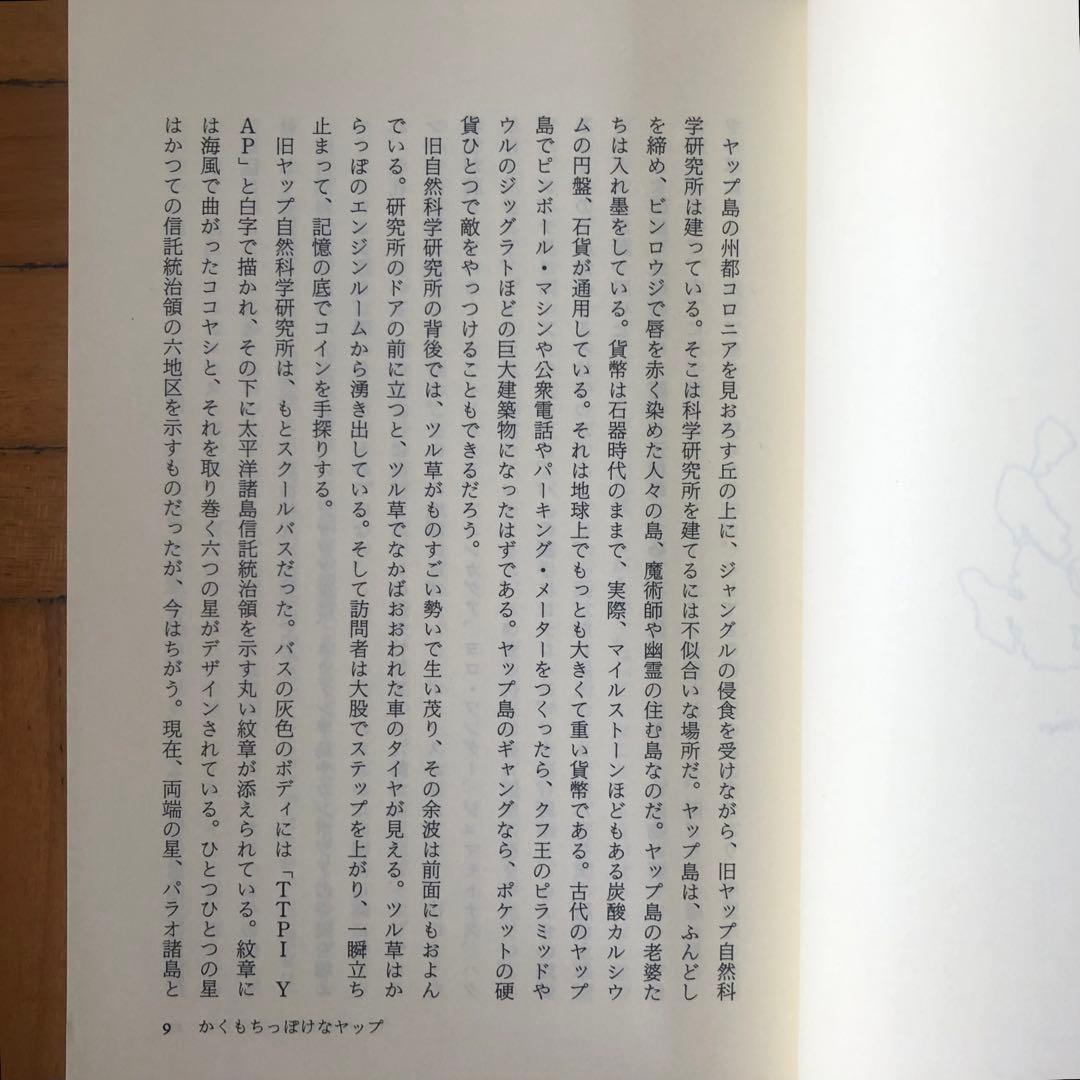 ヤップ島の州都コロニアを見おろす丘の上に、ジャングルの侵食を受けながら、旧ヤップ自然科
学研究所は建っている。そこは科学研究所を建てるには不似合いな場所だ。ヤップ島は、ふんどし
を締め、ビンロウジで唇を赤く染めた人々の島、魔術師や幽霊の住む島なのだ。ヤップ島の老婆た
ちは入れ墨をしている。貨幣は石器時代のままで、実際、マイルストーンほどもある炭酸カルシウ
ムの円盤、石貨が通用している。それは地球上でもっとも大きくて重い貨幣である。古代のヤップ
島でピンボール・マシンや公衆電話やパーキング・メーターをつくったら、クフ王のピラミッドや
ウルのジッグラトほどの巨大建築物になったはずである。ヤップ島のギャングなら、ポケットの硬
貨ひとつで敵をやっつけることもできるだろう。
旧自然科学研究所の背後では、ツル草がものすごい勢いで生い茂り、その余波は前面にもおよん
でいる。研究所のドアの前に立つと、ツル草でなかばおおわれた車のタイヤが見える。ツル草はか
らっぽのエンジンルームから湧き出している。そして訪問者は大股でステップを上がり、一瞬立ち
止まって、記憶の底でコインを手探りする。
旧ヤップ自然科学研究所は、もとスクールバスだった。バスの灰色のボディには「TTPI Y
AP」と白字で描かれ、その下に太平洋諸島信託統治領を示す丸い紋章が添えられている。紋章に
は海風で曲がったココヤシと、それを取り巻く六つの星がデザインされている。ひとつひとつの星
はかつての信託統治領の六地区を示すものだったが、今はちがう。現在、両端の星、パラオ諸島と
9 かくもちっぽけなヤップ